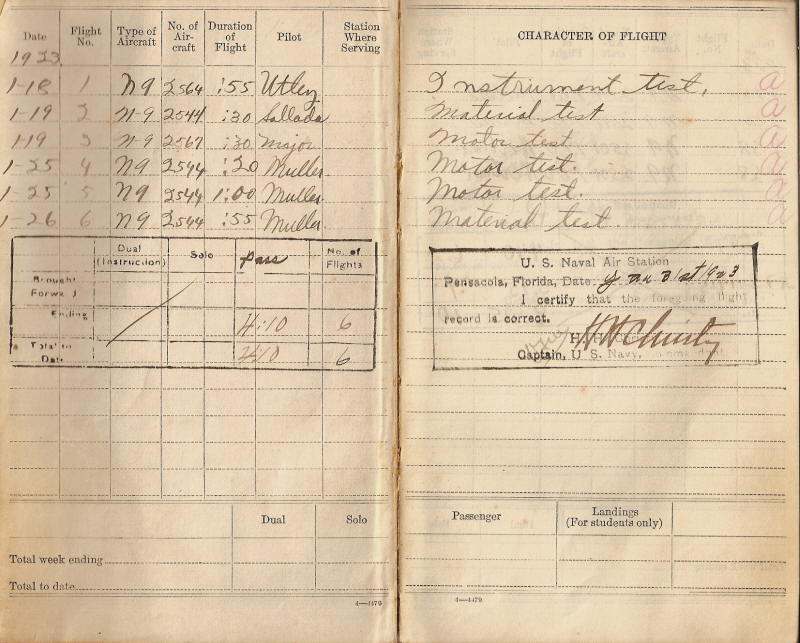 Date Flight No. Type of Aircraft No. of Air-craft Duration of Flight Pilot Station Where Serving
1923
1-18 1 N9 2564 :55 Utley
1-19 2 N-9 2544 :30 Sallada
1-19 3 N-9 2567 :30 Major
1-25 4 N9 2544 :20 Muller
1-25 5 N9 2544 1:00 Muller
1-26 6 N9 2544 :55 Muller
Dual (Instruction) Solo Pass No. of Flights
Brought Forward
Ending 4:10 6
Total to Date 4:10 6
Dual Solo
Total week ending
Total to date
4—4479
CHARACTER OF FLIGHT
Instrument test. a
Material test a
Motor test a
Motor test. a
Motor test. a
Material test a
U. S. Naval Air Station
Pensacola, Florida, Date: Jan 31st 1923
I certify that the foregoing flight
record is correct.
H H Christy
Captain, U. S. Navy,
Passenger Landings (For students only)
4—4479